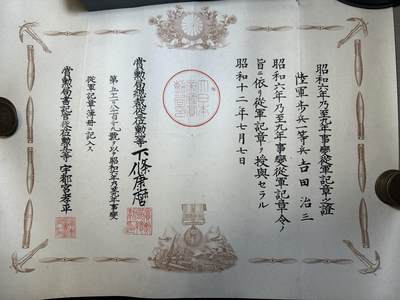 昭和六年乃至九年事變從軍記章之證
陸軍歩兵一等兵 吉田治三
昭和六年乃至九年事變從軍記章令ノ
旨ニ依リ從軍記章ヲ授與セラル
昭和十二年七月七日
賞勲局總裁從四位勲二等 下條康麿
昭和六年乃至九年事變
從軍記章簿冊ニ記入ス
賞勲局書記官從五位勲六等 宇都宮孝平